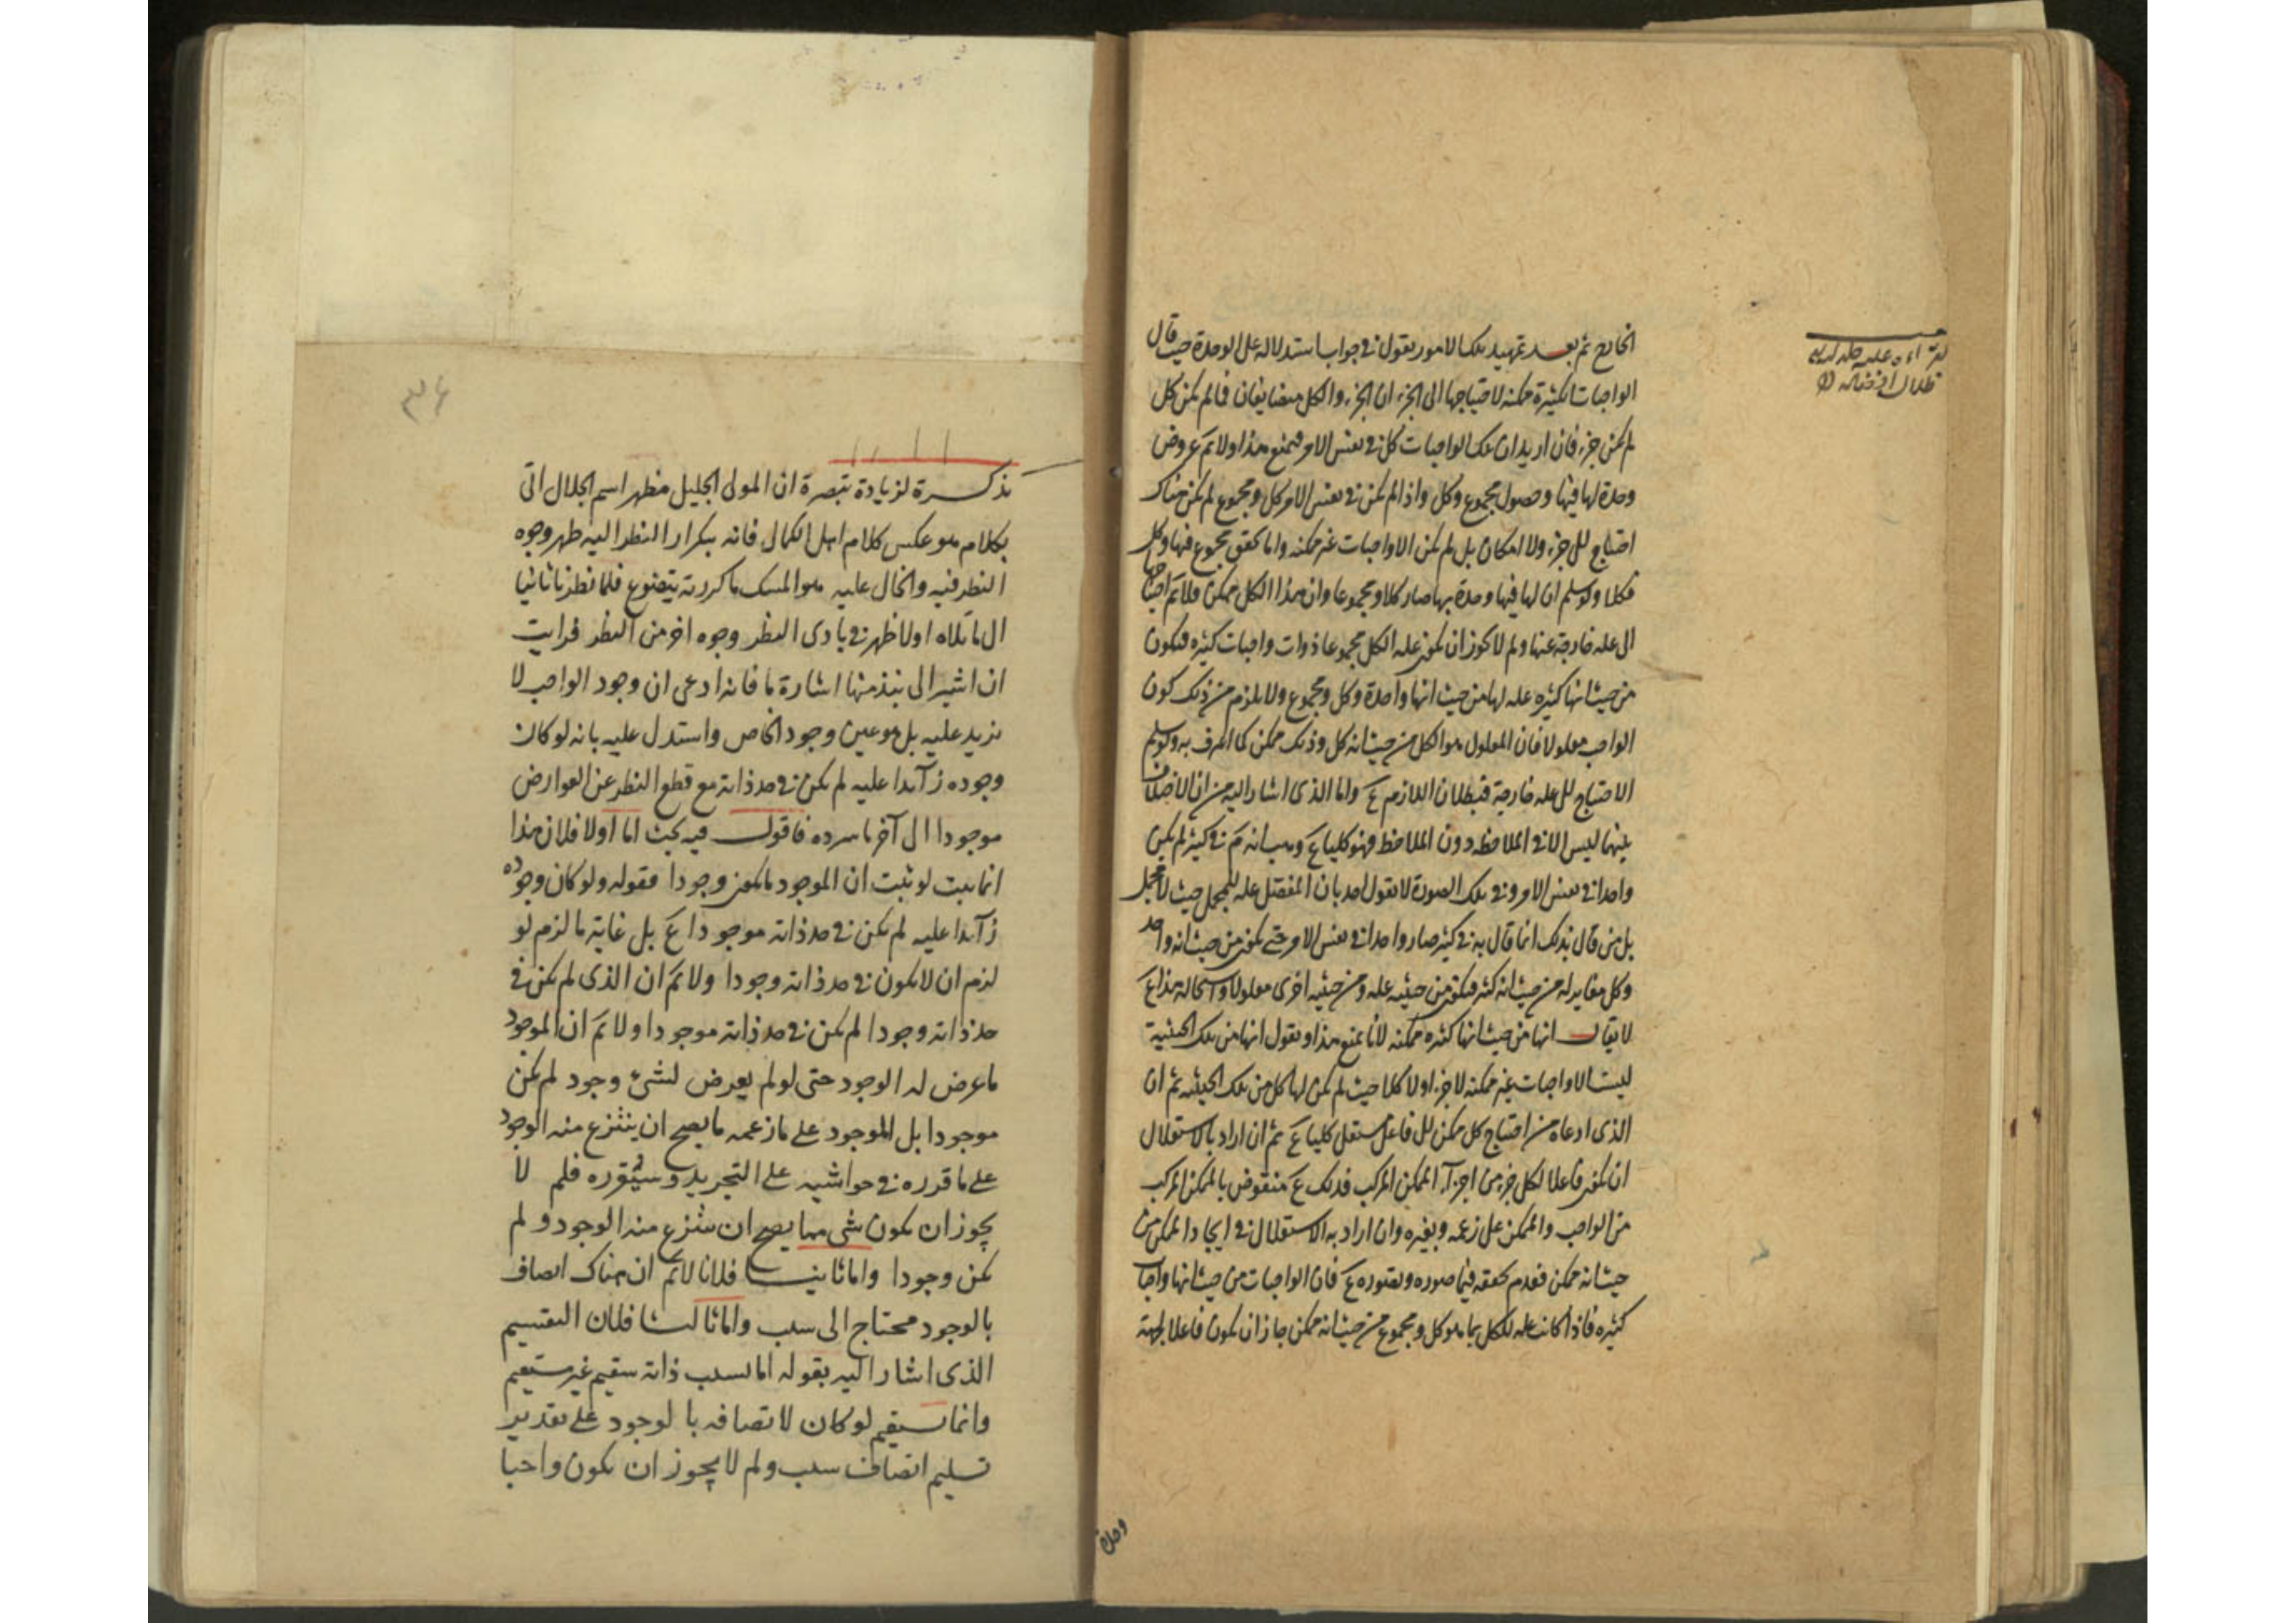 الخارج ثم بعد تمهيد تلك الامور نقول في جواب استدلاله على الوحدة حيث قال
الواجبات الكثيرة ممكنة لاحتياجها الى الجزء ان الجزء والكل متضايفان فما لم يكن كل
لم يكن جزء فان اريد ان تلك الواجبات كل في نفس الامر فيمنع هذا ولانم عروض
وحدة لها فيها وحصول مجموع وكل واذا لم يكن في نفس الامر كل ومجموع لم يكن هناك
احتياج للجزء ولا امكان بل لم يكن الا واجبات غير ممكنة واما تحقق مجموع فيها وكل
فكلا ولو سلم ان لها فيها وحدة بها صار كلا ومجموعا وان هذا الكل ممكن فلانم احتياجها
الى علة خارجة عنها ولم لا يجوز ان يكون علة الكل مجموعا ذوات واجبات كثيرة فيكون
من حيث انها كثيرة علة لها من حيث انها واحدة وكل ومجموع ولا يلزم من ذلك كون
الواجب معلولا فان المعلول هو الكل من حيث انه كل وذلك ممكن كما اعترف به ولو سلم
الاحتياج للعلة خارجة فبطلان اللازم ع واما الذي اشار اليه من ان الاختلاف
بينهما ليس الا في الملاحظة دون الملاحظ فهو كليا ع وبيانه نم في كثير لم يكن
واحدا في نفس الامر وفي تلك الصورة لا يقول احد بان المفصل علة للمجمل حيث لا مجمل
بل من قال بذلك انما قال به في كثير صار واحدا في نفس الامر حتى يكون من حيث انه واحد
وكل مغاير له من حيث انه كثير فيكون من حيثية علة ومن حيثية اخرى معلولا واستحالة هذا ع
لا يقال انها من حيث انها كثيرة ممكنة لانا نمنع هذا ونقول انها من تلك الحيثية
ليست الا واجبات غير ممكنة لا جزء اولا كلا حيث لم يكن لها كل من تلك الحيثية ثم ان
الذي ادعاه من احتياج كل ممكن للفاعل مستقل كليا ع ثم ان اراد بالاستقلال
ان يكون فاعلا لكل جزء من اجزاء الممكن المركب فذلك ع منقوض بالممكن المركب
من الواجب والممكن على زعمه وبغيره وان اراد به الاستقلال في ايجاد الممكن من
حيث انه ممكن فعدم تحققه فيما صوره وتصوره ع فان الواجبات من حيث انها واجبات
كثيرة فاذا كانت علة للكل بما هو كل ومجموع من حيث انه ممكن جاز ان يكون فاعلا لجهة
تذكرة لزيادة تبصرة ان المولى الجليل مظهر اسم الجلال اتى
بكلام هو عكس كلام اهل الكمال فانه بتكرار النظر اليه ظهر وجوه
النظر فيه والخال عليه هو المسك ما كررته يتضوع فلما نظرنا ثانيا
الى ما تلاه اولا ظهر في بادى النظر وجوه اخر من النظر فرايت
ان اشير الى نبذ منها اشارة ما فانه ادعى ان وجود الواجب لا
يزيد عليه بل هو عين وجود الخاص واستدل عليه بانه لو كان
وجوده زآئدا عليه لم يكن في حد ذاته مع قطع النظر عن العوارض
موجودا الى آخر ما سرده فاقول فيه بحث اما اولا فلان هذا
انما يثبت لو ثبت ان الموجود ما يكون وجودا فقوله ولو كان وجوده
زآئدا عليه لم يكن في حد ذاته موجودا ع بل غاية ما لزم لو
لزم ان لا يكون في حد ذاته وجودا ولانم ان الذي لم يكن في
حد ذاته وجودا لم يكن في حد ذاته موجودا ولانم ان الموجود
ما عرض له الوجود حتى لو لم يعرض لشئ وجود لم يكن
موجودا بل الموجود على ما زعمه ما يصح ان ينتزع منه الوجود
على ما قرره في حواشيه على التجريد وسيقرره فلم لا
يجوز ان يكون شئ مما يصح ان ينتزع منه الوجود ولم
يكن وجودا واما ثانيا فلانا لانم ان هناك اتصاف
بالوجود محتاج الى سبب واما ثالثا فلان التقسيم
الذي اشار اليه بقوله اما بسبب ذاته سقيم غير مستقيم
وانما يستقيم لو كان لاتصافه بالوجود على تقدير
تسليم اتصاف سبب ولم لا يجوز ان يكون واجبا